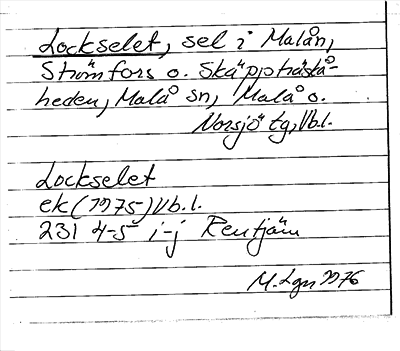 Lockselet, sel i Malån,
Strömfors o. Skäppträskå-
heden, Malå sn, Malå o.
Norsjö tg, Vb.l.
Lockselet
ek (1975) Vb.l.
231 4-5 i-j Rentjärn
M. Lgn 1976